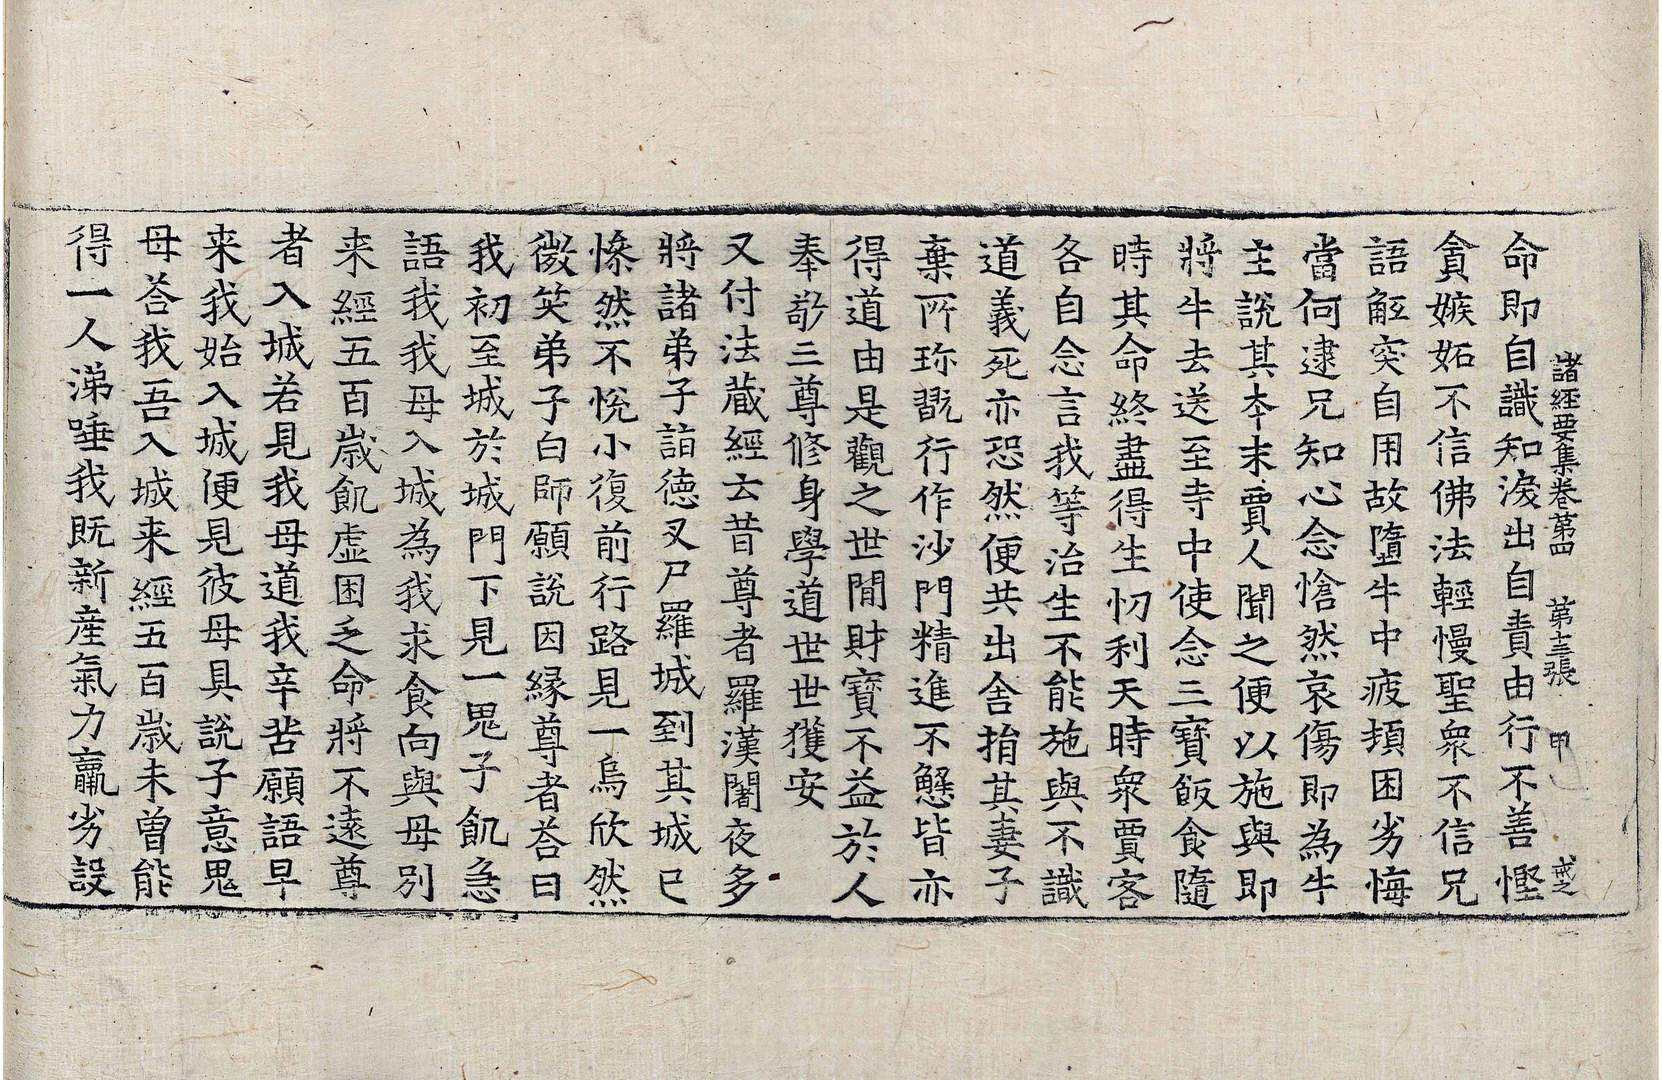 諸經要集卷第四 第十三張 甲 戒之
命即自識知淚出自責由行不善慳
貪嫉妬不信佛法輕慢聖衆不信兄
語觝突自用故墮牛中疲頓困劣悔
當何逮兄知心念愴然哀傷即為牛
主說其夲末賈人聞之便以施與即
將牛去送至寺中使念三寶飯食隨
時其命終盡得生忉利天時衆賈客
各自念言我等治生不能施與不識
道義死亦恐然便共出舍捐其妻子
棄所珎翫行作沙門精進不懈皆亦
得道由是觀之世間財寶不益於人
奉敬三尊修身學道世世獲安
又付法蔵經云昔尊者羅漢闍夜多
將諸弟子詣德叉尸羅城到其城已
慘然不悅小復前行路見一烏欣然
微笑弟子白師願說因縁尊者荅曰
我初至城於城門下見一鬼子飢急
語我我母入城為我求食向與母別
来經五百歲飢虛困乏命將不遠尊
者入城若見我母道我辛苦願語早
来我始入城便見彼母具說子意鬼
母荅我吾入城来經五百歲未曽能
得一人涕唾我既新産氣力羸劣設